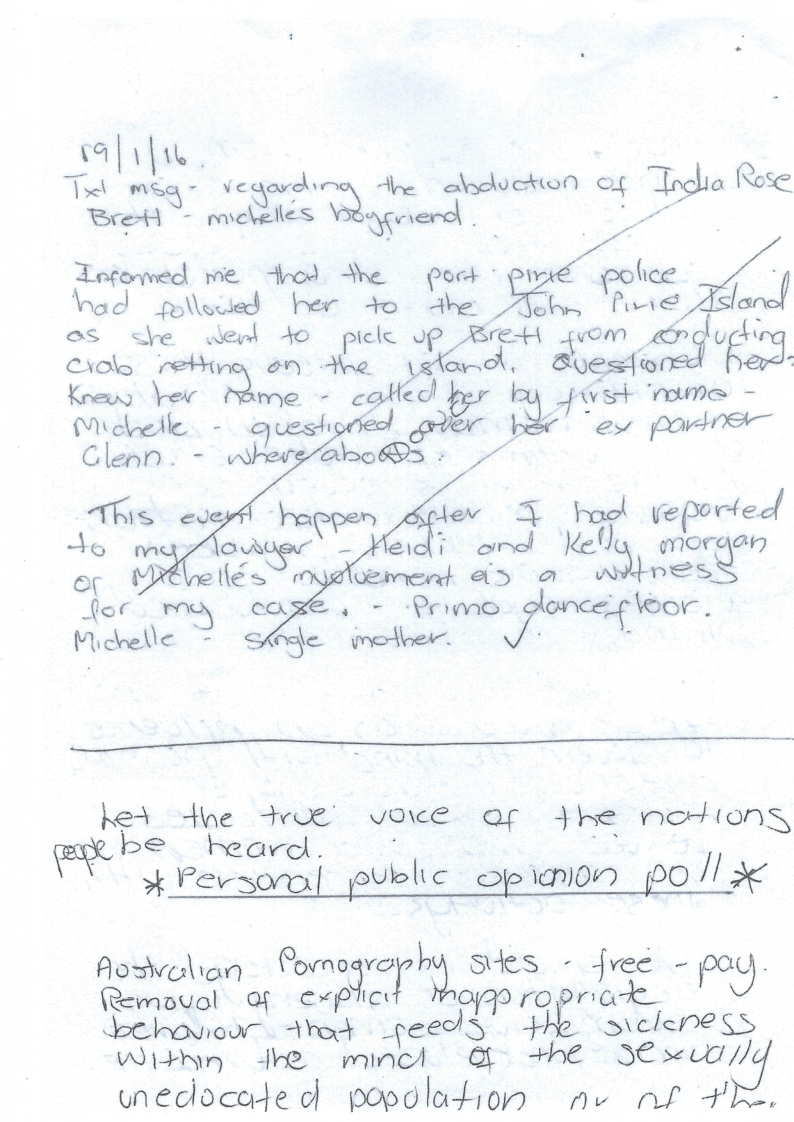 19/1/16.
Txt msg - regarding the abduction of India Rose
Brett - michelles boyfriend.
Informed me that the port pirie police
had followed her to the John Pirie Island
as she went to pick up Brett from conducting
crab netting on the island. Questioned her
Knew her name - called her by first name -
Michelle - questioned over her ex partner
Glenn. - where abouts.
This event happen after I had reported
to my lawyer - Heidi and Kelly morgan
of Michelle's involvement as a witness
for my case. - Primo dancefloor.
Michelle - single mother. ✓
Let the true voice of the nations
people be heard.
* Personal public opionion poll *
Australian Pornography sites - free - pay.
Removal of explicit inappropriate
behaviour that feeds the sickness
within the mind of the sexually
uneducated population or of the